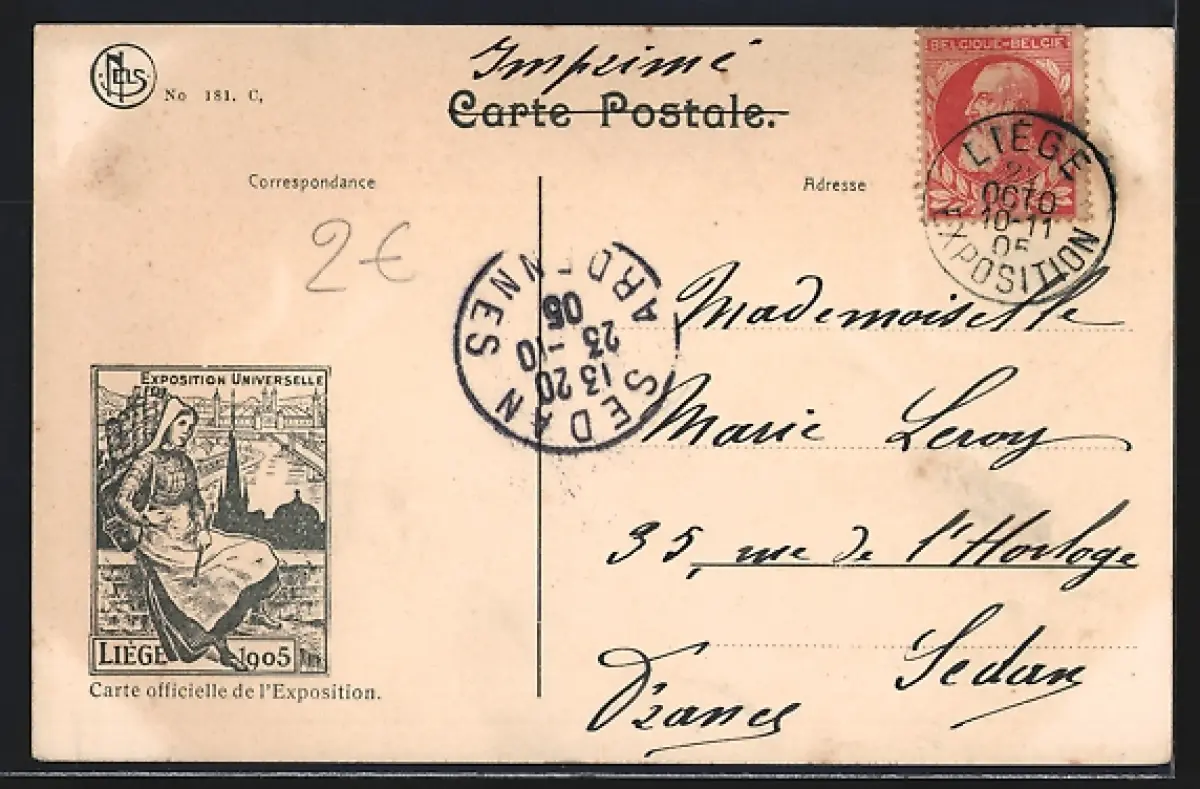 Imprimé
Carte Postale.
Nels
No 181. C,
BELGIQUE-BELGIË
LIÉGE
OCTO
10-11
05
EXPOSITION
Correspondance
Adresse
2€
SEDAN
13 20
23 -10
05
ARDENNES
Mademoiselle
Marie Leroy
35, rue de l'Horloge
Sedan
France
EXPOSITION UNIVERSELLE
LIÈGE 1905
Carte officielle de l'Exposition.